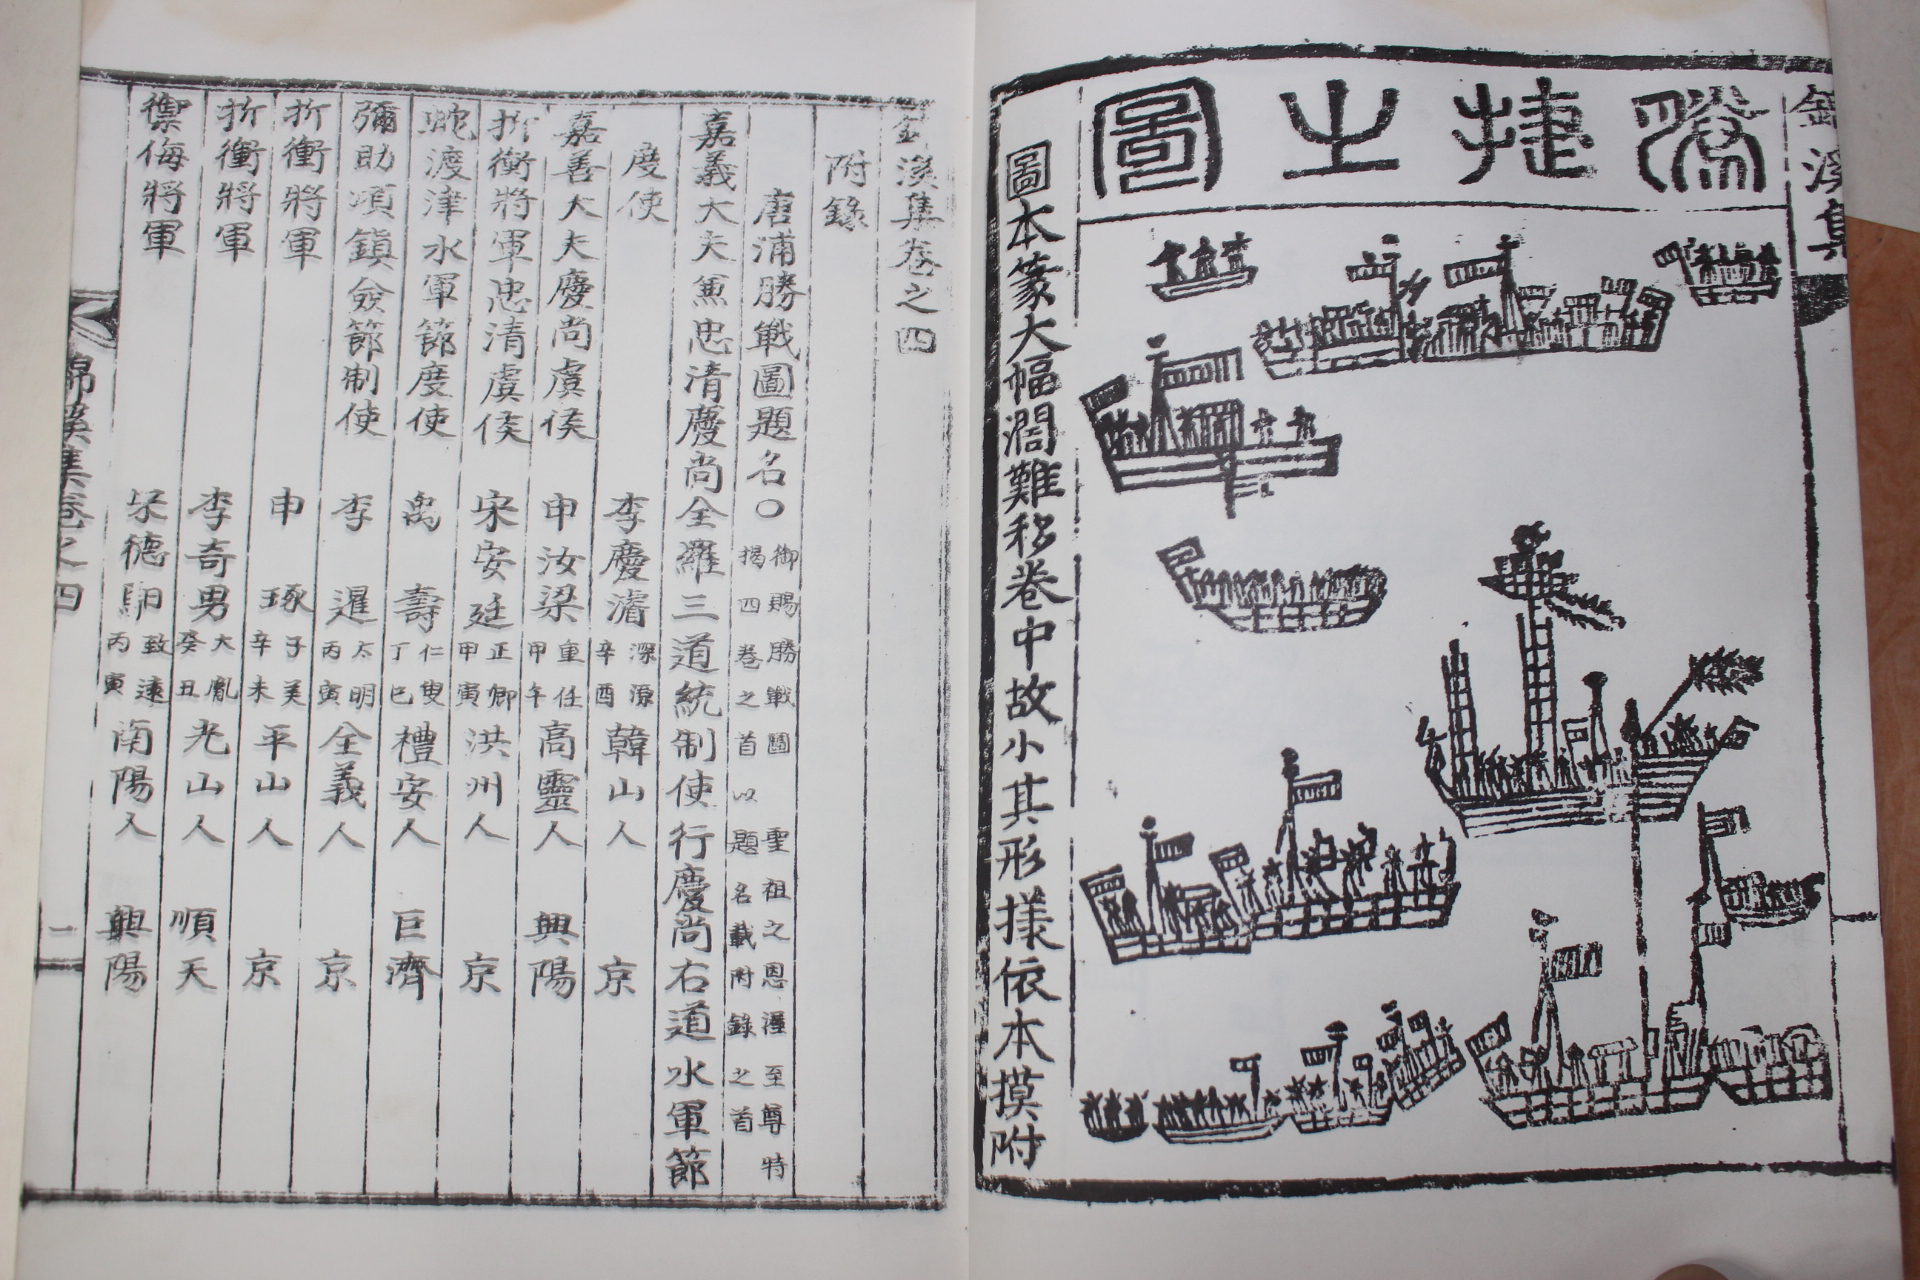 錦溪集
勝捷之圖
圖本篆大幅濶難移卷中故小其形樣依本摸附
錦溪集卷之四
附錄
唐浦勝戰圖題名○御賜勝戰圖 聖祖之恩渥至尊特揭四卷之首以題名載附錄之首
嘉義大夫兼忠清慶尚全羅三道統制使行慶尚右道水軍節
度使 李慶濬 深源 辛酉 韓山人 京
嘉善大夫慶尚虞侯 申汝梁 重任 甲午 高靈人 興陽
折衝將軍忠清虞侯 宋安廷 正卿 甲寅 洪州人 京
蛇渡津水軍節度使 禹壽 仁叟 丁巳 禮安人 巨濟
彌助項鎭僉節制使 李暹 太明 丙寅 全義人 京
折衝將軍 申琢 子美 辛未 平山人 京
折衝將軍 李奇男 大胤 癸丑 光山人 順天
禦侮將軍 宋德馹 致遠 丙寅 南陽人 興陽
錦溪集卷之四 一